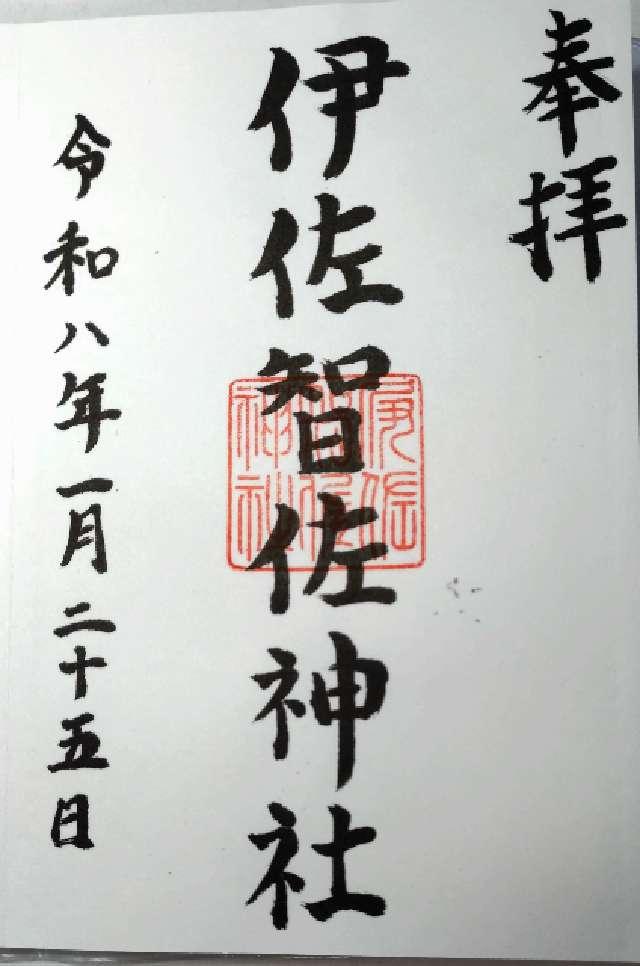 奉拝
伊佐智佐神社
令和八年一月二十五日